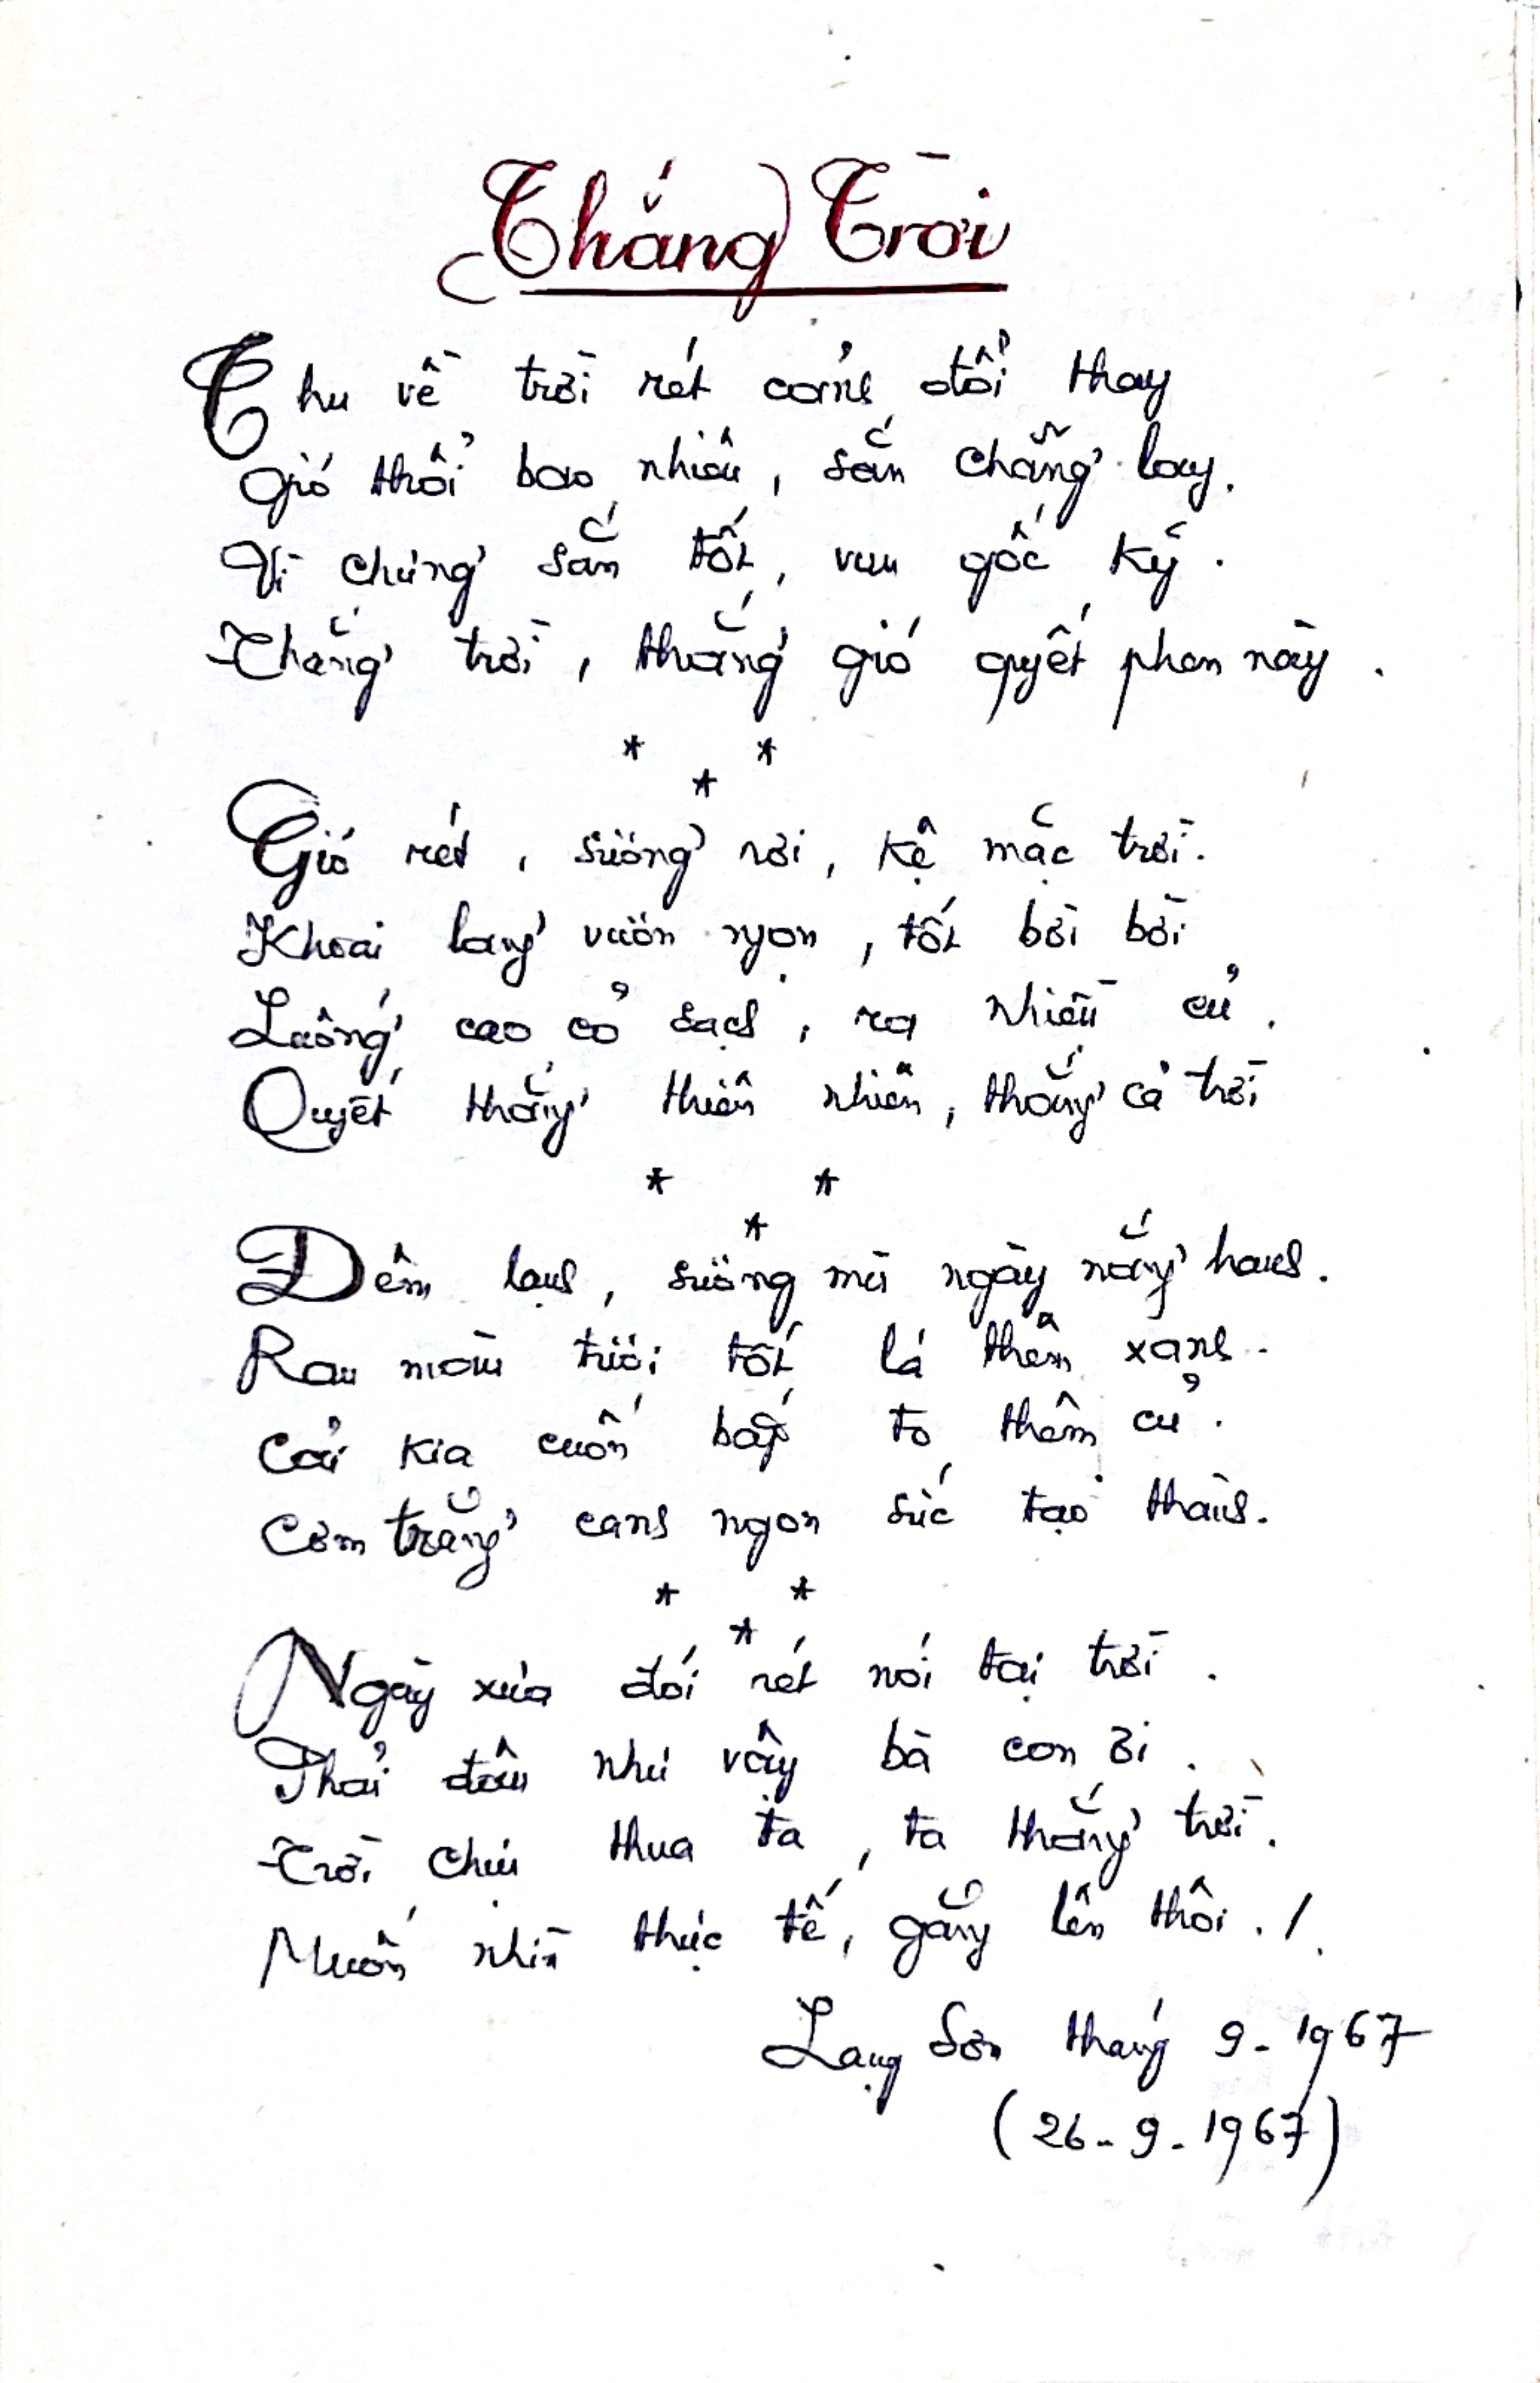 Thắng Trời
Thu về trời rét cảnh đổi thay
Gió thổi bao nhiêu, sắn chẳng lay.
Vì chưng sắn tốt, vun gốc kỹ.
Thắng trời, thắng gió quyết phen này.
* * *
Gió rét, sương rơi, kệ mặc trời.
Khoai lang vươn ngọn, tốt bời bời
Luống cao cỏ sạch, ra nhiều củ.
Quyết thắng thiên nhiên, thắng cả trời
* * *
Đêm lạnh, sương mù ngày nắng hanh.
Rau màu tươi tốt lá thêm xanh.
Cải kia cuốn bắp to thêm củ.
Cơm trắng canh ngon sức tạo thành.
* * *
Ngày xưa đói rét nói tại trời.
Phải đâu như vậy bà con ơi.
Trời chịu thua ta, ta thắng trời.
Muốn nhìn thực tế, gắng lên thôi./.
Lạng Sơn tháng 9-1967
(26-9-1967)